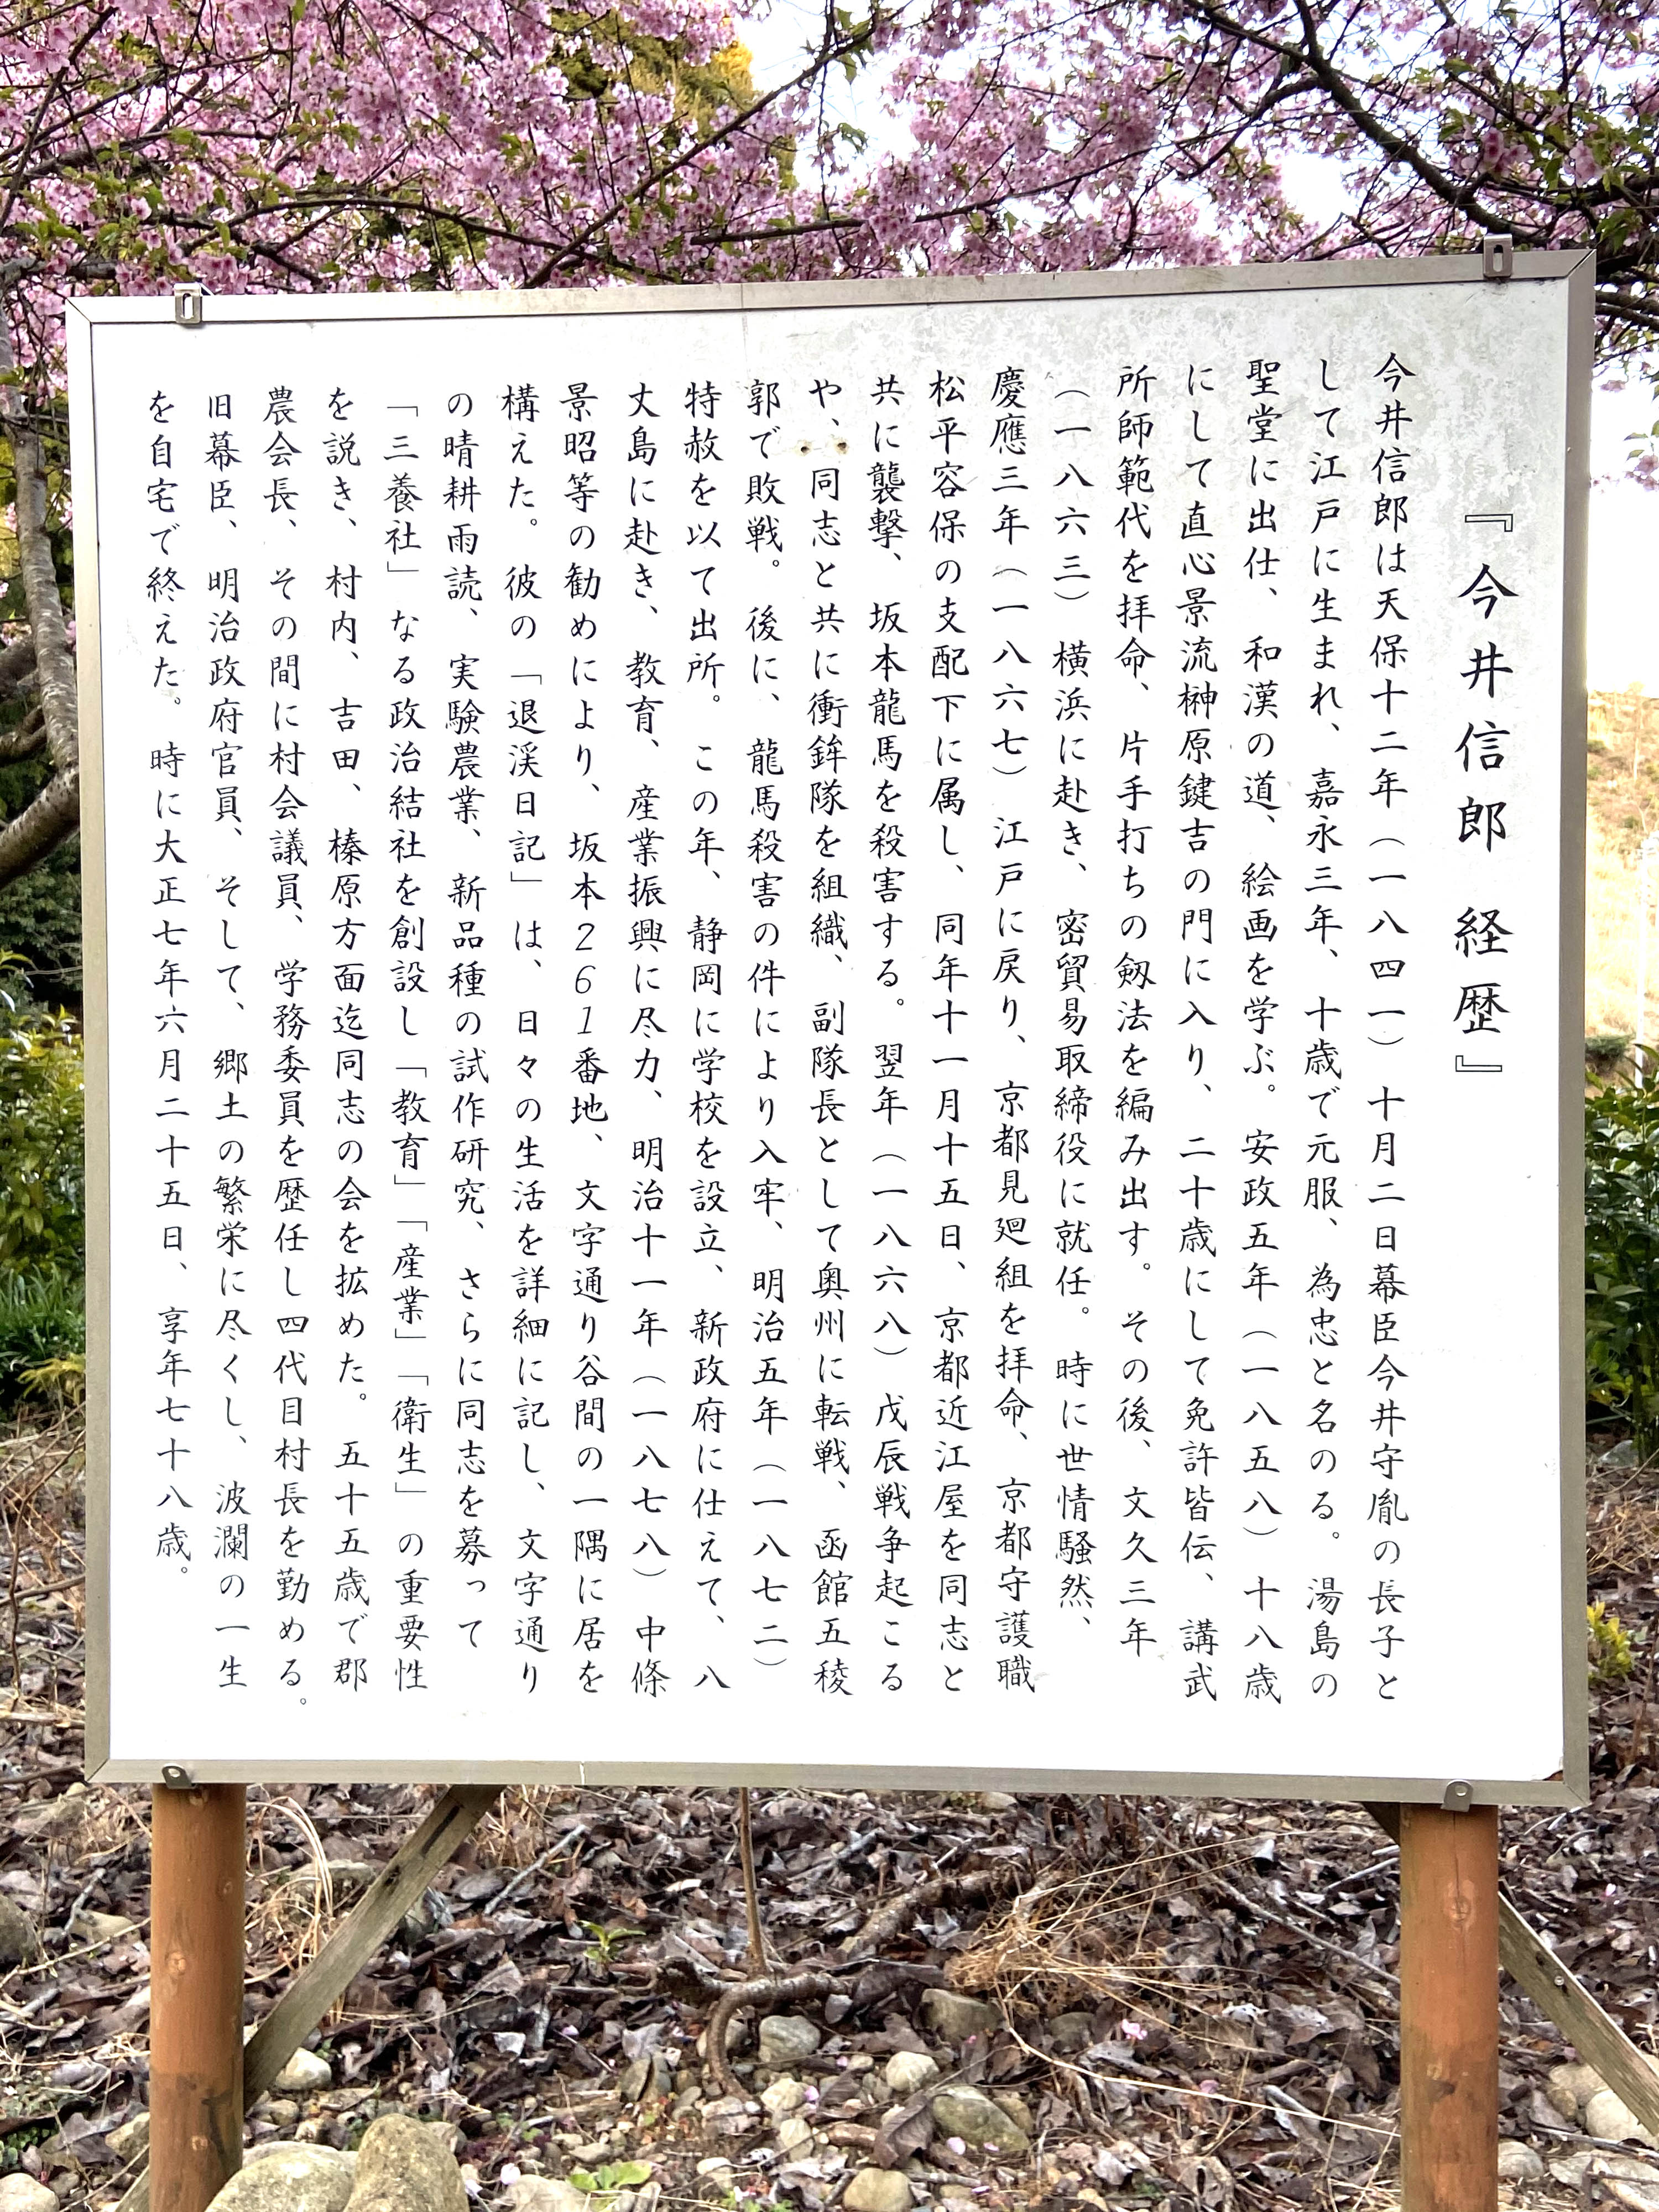 『今井信郎 経歴』
今井信郎は天保十二年（一八四一）十月二日幕臣今井守胤の長子と
して江戸に生まれ、嘉永三年、十歳で元服、為忠と名のる。湯島の
聖堂に出仕、和漢の道、絵画を学ぶ。安政五年（一八五八）十八歳
にして直心景流榊原鍵吉の門に入り、二十歳にして免許皆伝、講武
所師範代を拝命、片手打ちの剱法を編み出す。その後、文久三年
（一八六三）横浜に赴き、密貿易取締役に就任。時に世情騒然、
慶應三年（一八六七）江戸に戻り、京都見廻組を拝命、京都守護職
松平容保の支配下に属し、同年十一月十五日、京都近江屋を同志と
共に襲撃、坂本龍馬を殺害する。翌年（一八六八）戊辰戦争起こる
や、同志と共に衝鉾隊を組織、副隊長として奥州に転戦、函館五稜
郭で敗戦。後に、龍馬殺害の件により入牢、明治五年（一八七二）
特赦を以て出所。この年、静岡に学校を設立、新政府に仕えて、八
丈島に赴き、教育、産業振興に尽力、明治十一年（一八七八）中條
景昭等の勧めにより、坂本261番地、文字通り谷間の一隅に居を
構えた。彼の「退渓日記」は、日々の生活を詳細に記し、文字通り
の晴耕雨読、実験農業、新品種の試作研究、さらに同志を募って
「三養社」なる政治結社を創設し「教育」「産業」「衛生」の重要性
を説き、村内、吉田、榛原方面迄同志の会を拡めた。五十五歳で郡
農会長、その間に村会議員、学務委員を歴任し四代目村長を勤める。
旧幕臣、明治政府官員、そして、郷土の繁栄に尽くし、波瀾の一生
を自宅で終えた。時に大正七年六月二十五日、享年七十八歳。